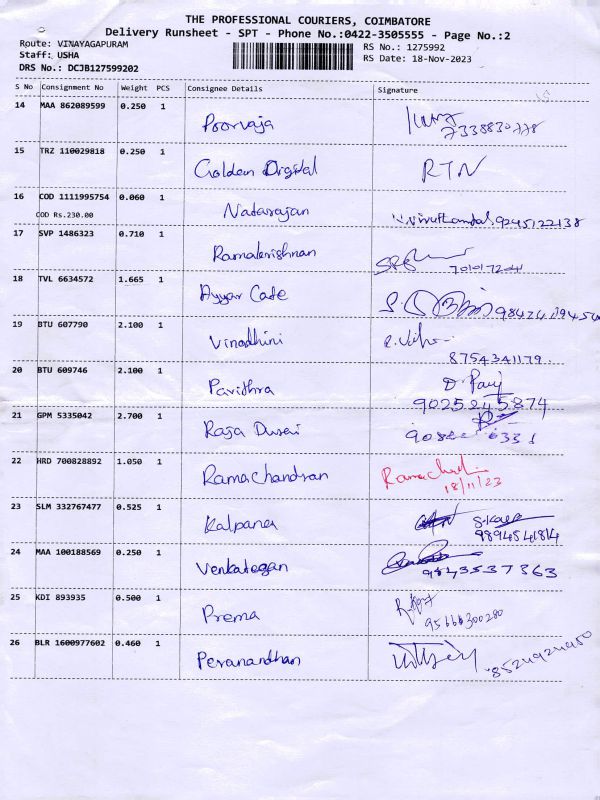 THE PROFESSIONAL COURIERS, COIMBATORE
Delivery Runsheet - SPT - Phone No.:0422-3505555 - Page No.:2
Route: VINAYAGAPURAM RS No.: 1275992
Staff: USHA RS Date: 18-Nov-2023
DRS No.: DCJB127599202
S No Consignment No Weight PCS Consignee Details Signature
14 MAA 862089599 0.250 1 Poorvaja 7338830778
15 TRZ 110029818 0.250 1 Golden Digital RTN
16 COD 1111995754 0.060 1 Natarajan 9245122138
COD Rs.230.00
17 SVP 1486323 0.710 1 Ramakrishnan
18 TVL 6634572 1.665 1 Ayyar Cafe
19 BTU 607790 2.100 1 Vinodhini
8754341179.
20 BTU 609746 2.100 1 Pavithra
9025245874
21 GPM 5335042 2.700 1 Raja Durai
22 HRD 700828892 1.050 1 Ramachandran
18/11/23
23 SLM 332767477 0.525 1 Kalpana
9894541814
24 MAA 100188569 0.250 1 Venkatesan
9843537363
25 KDI 893935 0.500 1 Prema
95666300280
26 BLR 1600977602 0.460 1 Peranandhan 8524924950